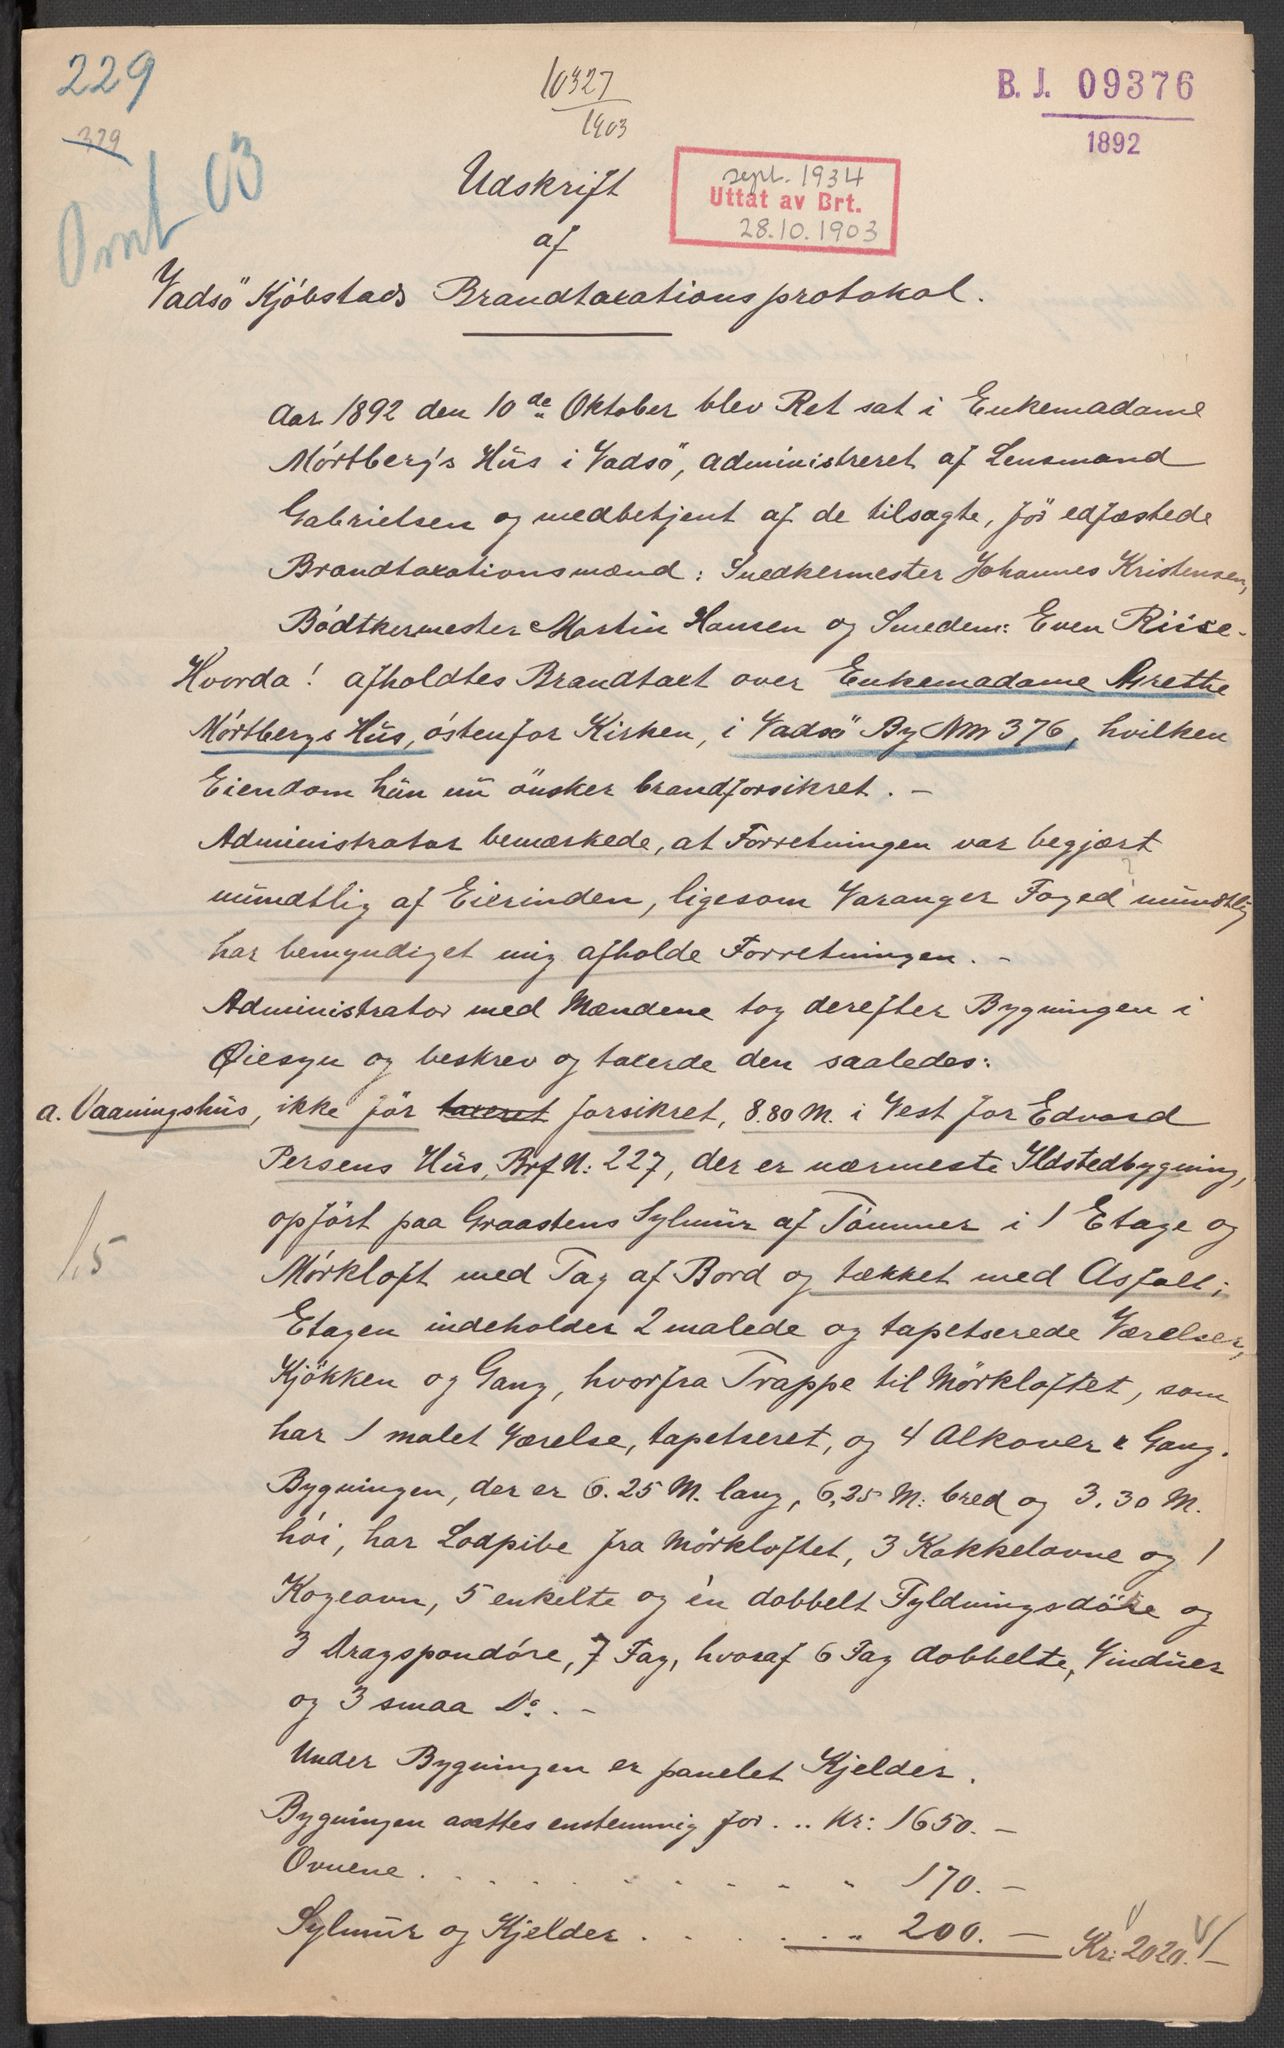 229
329
Omt 03
10327
1903
B. J. 09376
1892
sept. 1934
Uttat av Brt.
28.10.1903
Udskrift
af
Vadsö Kjöbstads Brandtaxationsprotokol.
Aar 1892 den 10de Oktober blev Ret sat i Enkemadame
Mörtberg's Hus i Vadsö, administreret af Lensmand
Gabrielsen og medbetjent af de tilsagte, för edfæstede
Brandtaxationsmænd: Snedkermester Johannes Kristensen,
Bödtkermester Martin Hansen og Smedem: Even Riise.
Hvorda! afholdtes Brandtaxt over Enkemadame Grethe
Mörtbergs Hus, östenfor Kirken, i Vadsö By Nr 376, hvilken
Eiendom hun nu önsker brandforsikret. –
Administrator bemærkede, at Forretningen var begjært
mundtlig af Eierinden, ligesom Varanger Foged mundtlig
har bemyndiget mig afholde Forretningen. –
Administrator med Mændene tog derefter Bygningen i
Øiesyn og beskrev og taxerde den saaledes:
a. Vaaningshus, ikke för taxeret forsikret, 8.80 M. i Vest for Edvard
Persens Hus, Brf N: 227, der er nærmeste Ildstedbygning,
opfört paa Graastens Sylmur af Tömmer i 1 Etage og
1.5
Mörkloft med Tag af Bord og tækket med Asfalt;
Etagen indeholder 2 malede og tapetserede Værelser,
Kjökken og Gang, hvorfra Trappe til Mörkloftet, som
har 1 malet Værelse, tapetseret, og 4 Alkover & Gang.
Bygningen, der er 6.25 M. lang, 6,25 M: bred og 3.30 M.
höi, har Lodpibe fra Mörkloftet, 3 Kakkelovne og 1
Kogeovn, 5 enkelte og én dobbelt Fyldningsdöre og
3 Dragspondöre, 7 Fag, hvoraf 6 Fag dobbelte, Vinduer
og 3 smaa Do. –
Under Bygningen er panelet Kjelder.
Bygningen asættes enstemmig for . .. Kr: 1650. –
Ovnene . . . . . . . . . " 170. –
Sylmur og Kjelder . . . . . . " 200. – Kr: 2020. –